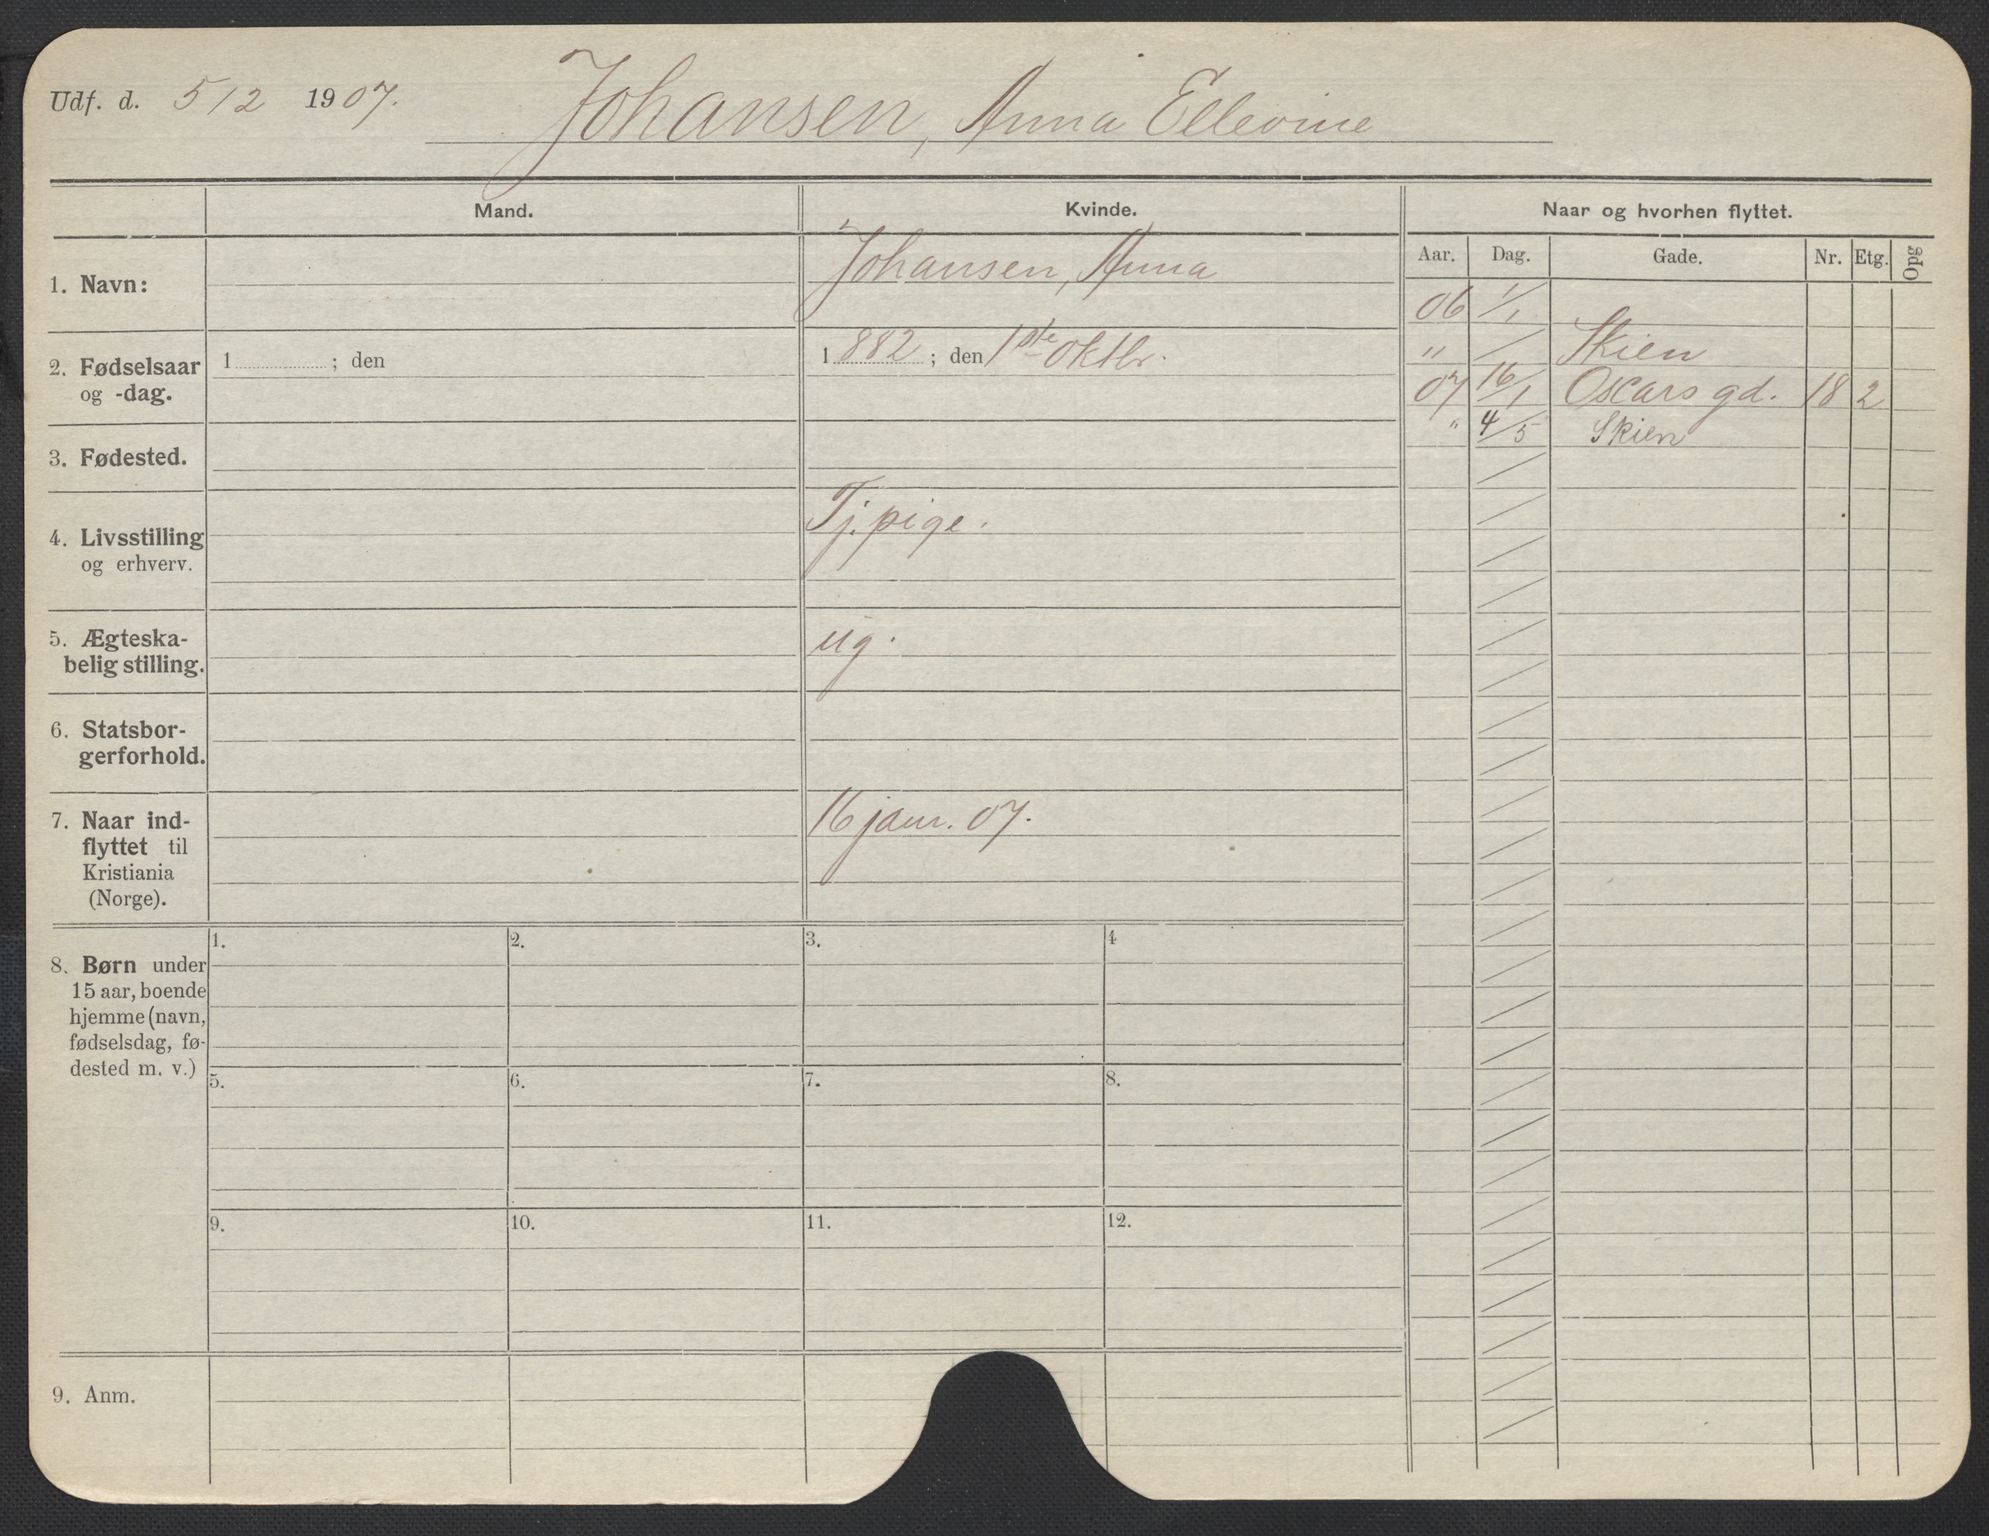 Udf. d. 5/2 1907. Johansen, Anna Ellevine
Mand. Kvinde. Naar og hvorhen flyttet.
Aar. Dag. Gade. Nr. Etg. Opg
1. Navn: Johansen, Anna
06 1/1
2. Fødselsaar og -dag. 1 ; den 1882 ; den 1ste oktbr.
" Skien
07 16/1 Oscars gd. 18 2
" 4/5 Skien
3. Fødested.
4. Livsstilling og erhverv. Tj. pige.
5. Ægteska-
belig stilling. ug.
6. Statsbor-
gerforhold.
7. Naar ind-
flyttet til
Kristiania
(Norge). 16 janr. 07.
8. Børn under
15 aar, boende
hjemme (navn,
fødselsdag, fø-
dested m. v.)
1. 2. 3. 4
5. 6. 7. 8.
9. 10. 11. 12.
9. Anm.